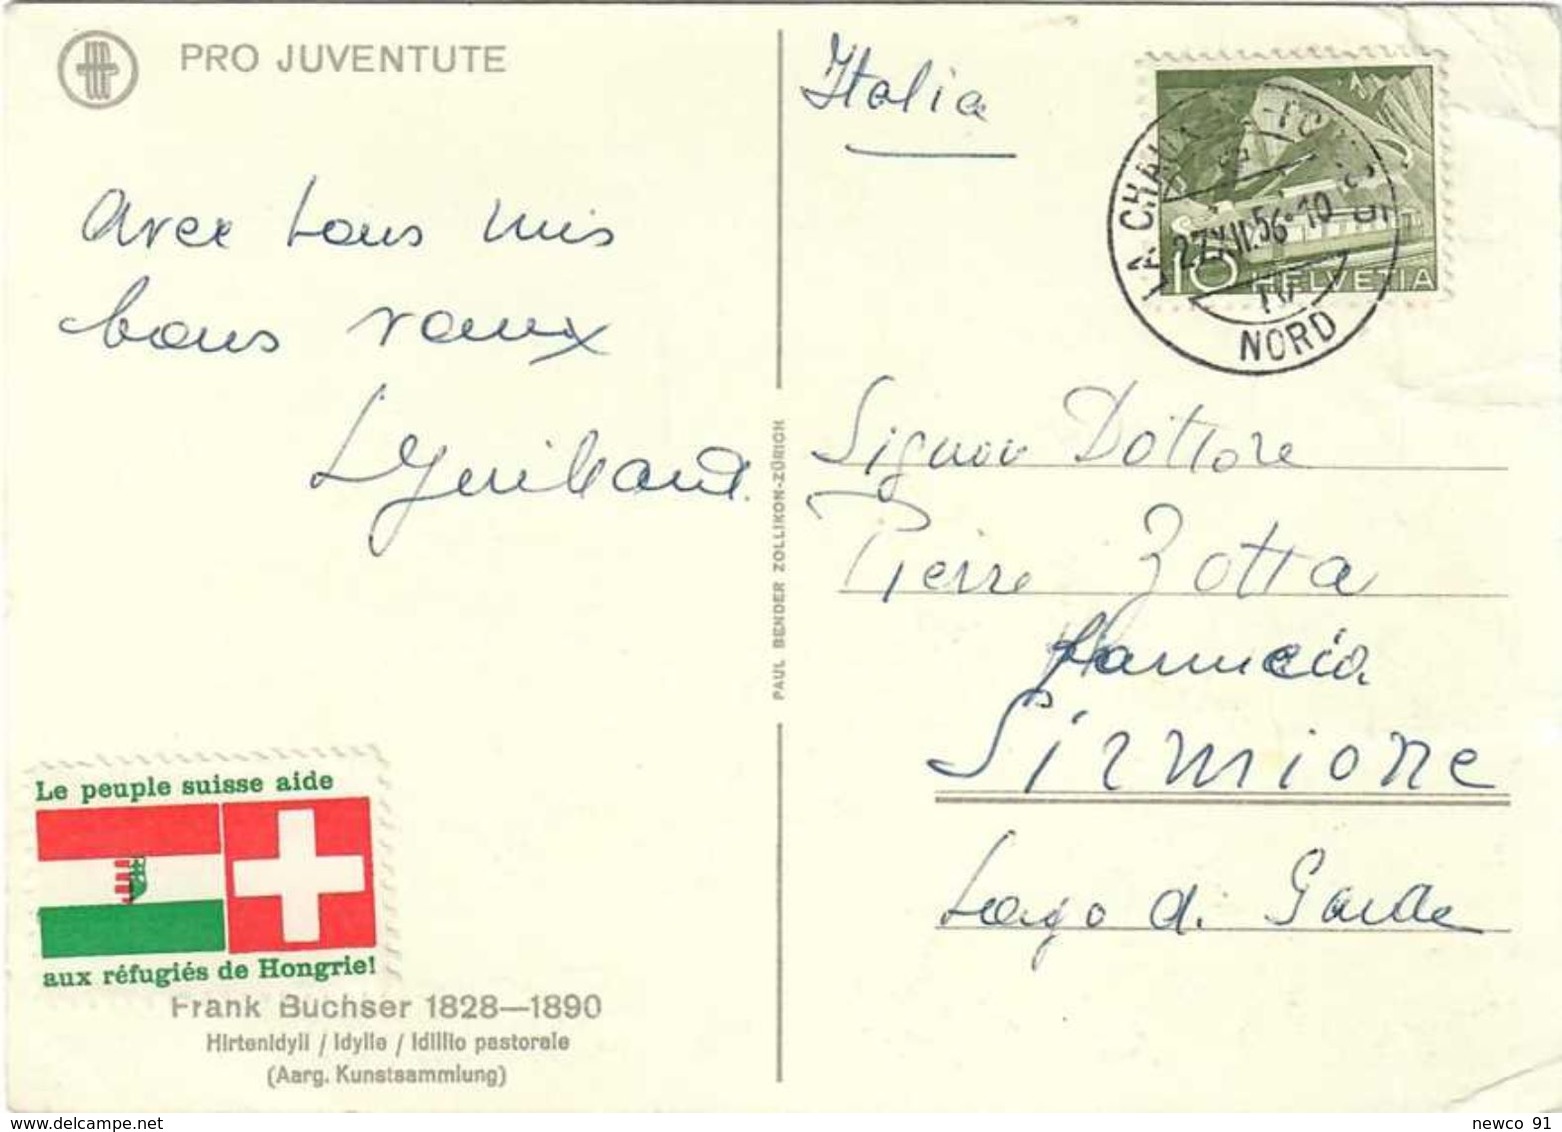 PRO JUVENTUTE
Italia
LA CHAUX-DE-FONDS
27.XII.56-10
NORD
10 HELVETIA
Avec tous mes
bons vœux
Signor Dottore
Pierre Zotta
farmacia
Sirmione
Lago di Garda
PAUL BENDER ZOLLIKON-ZÜRICH
Le peuple suisse aide
aux réfugiés de Hongrie!
Frank Buchser 1828—1890
Hirtenidyll / Idylle / Idillio pastorale
(Aarg. Kunstsammlung)
newco 91